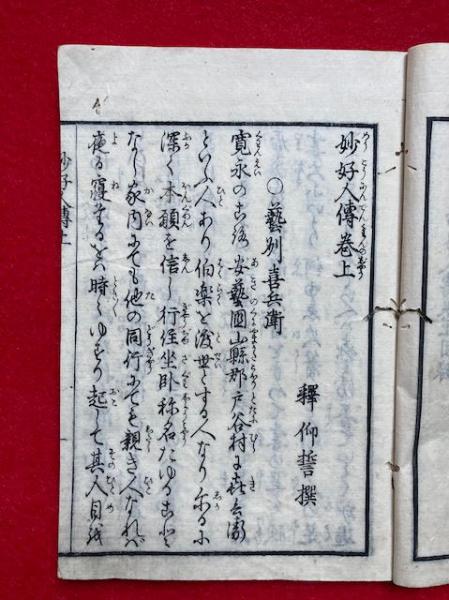 妙好人傳巻上
釋仰誓撰
○藝州喜兵衛
寛永のころ安藝國山縣郡戸谷村に喜兵衛
といふ人あり伯楽を渡世とする人なりしかるに
深く本願を信し行住坐卧称名たゆること
なし家内にても他の同行にても親き人なれバ
夜る寝たるをバ時〻ゆすり起して其人目を
妙好人傳上